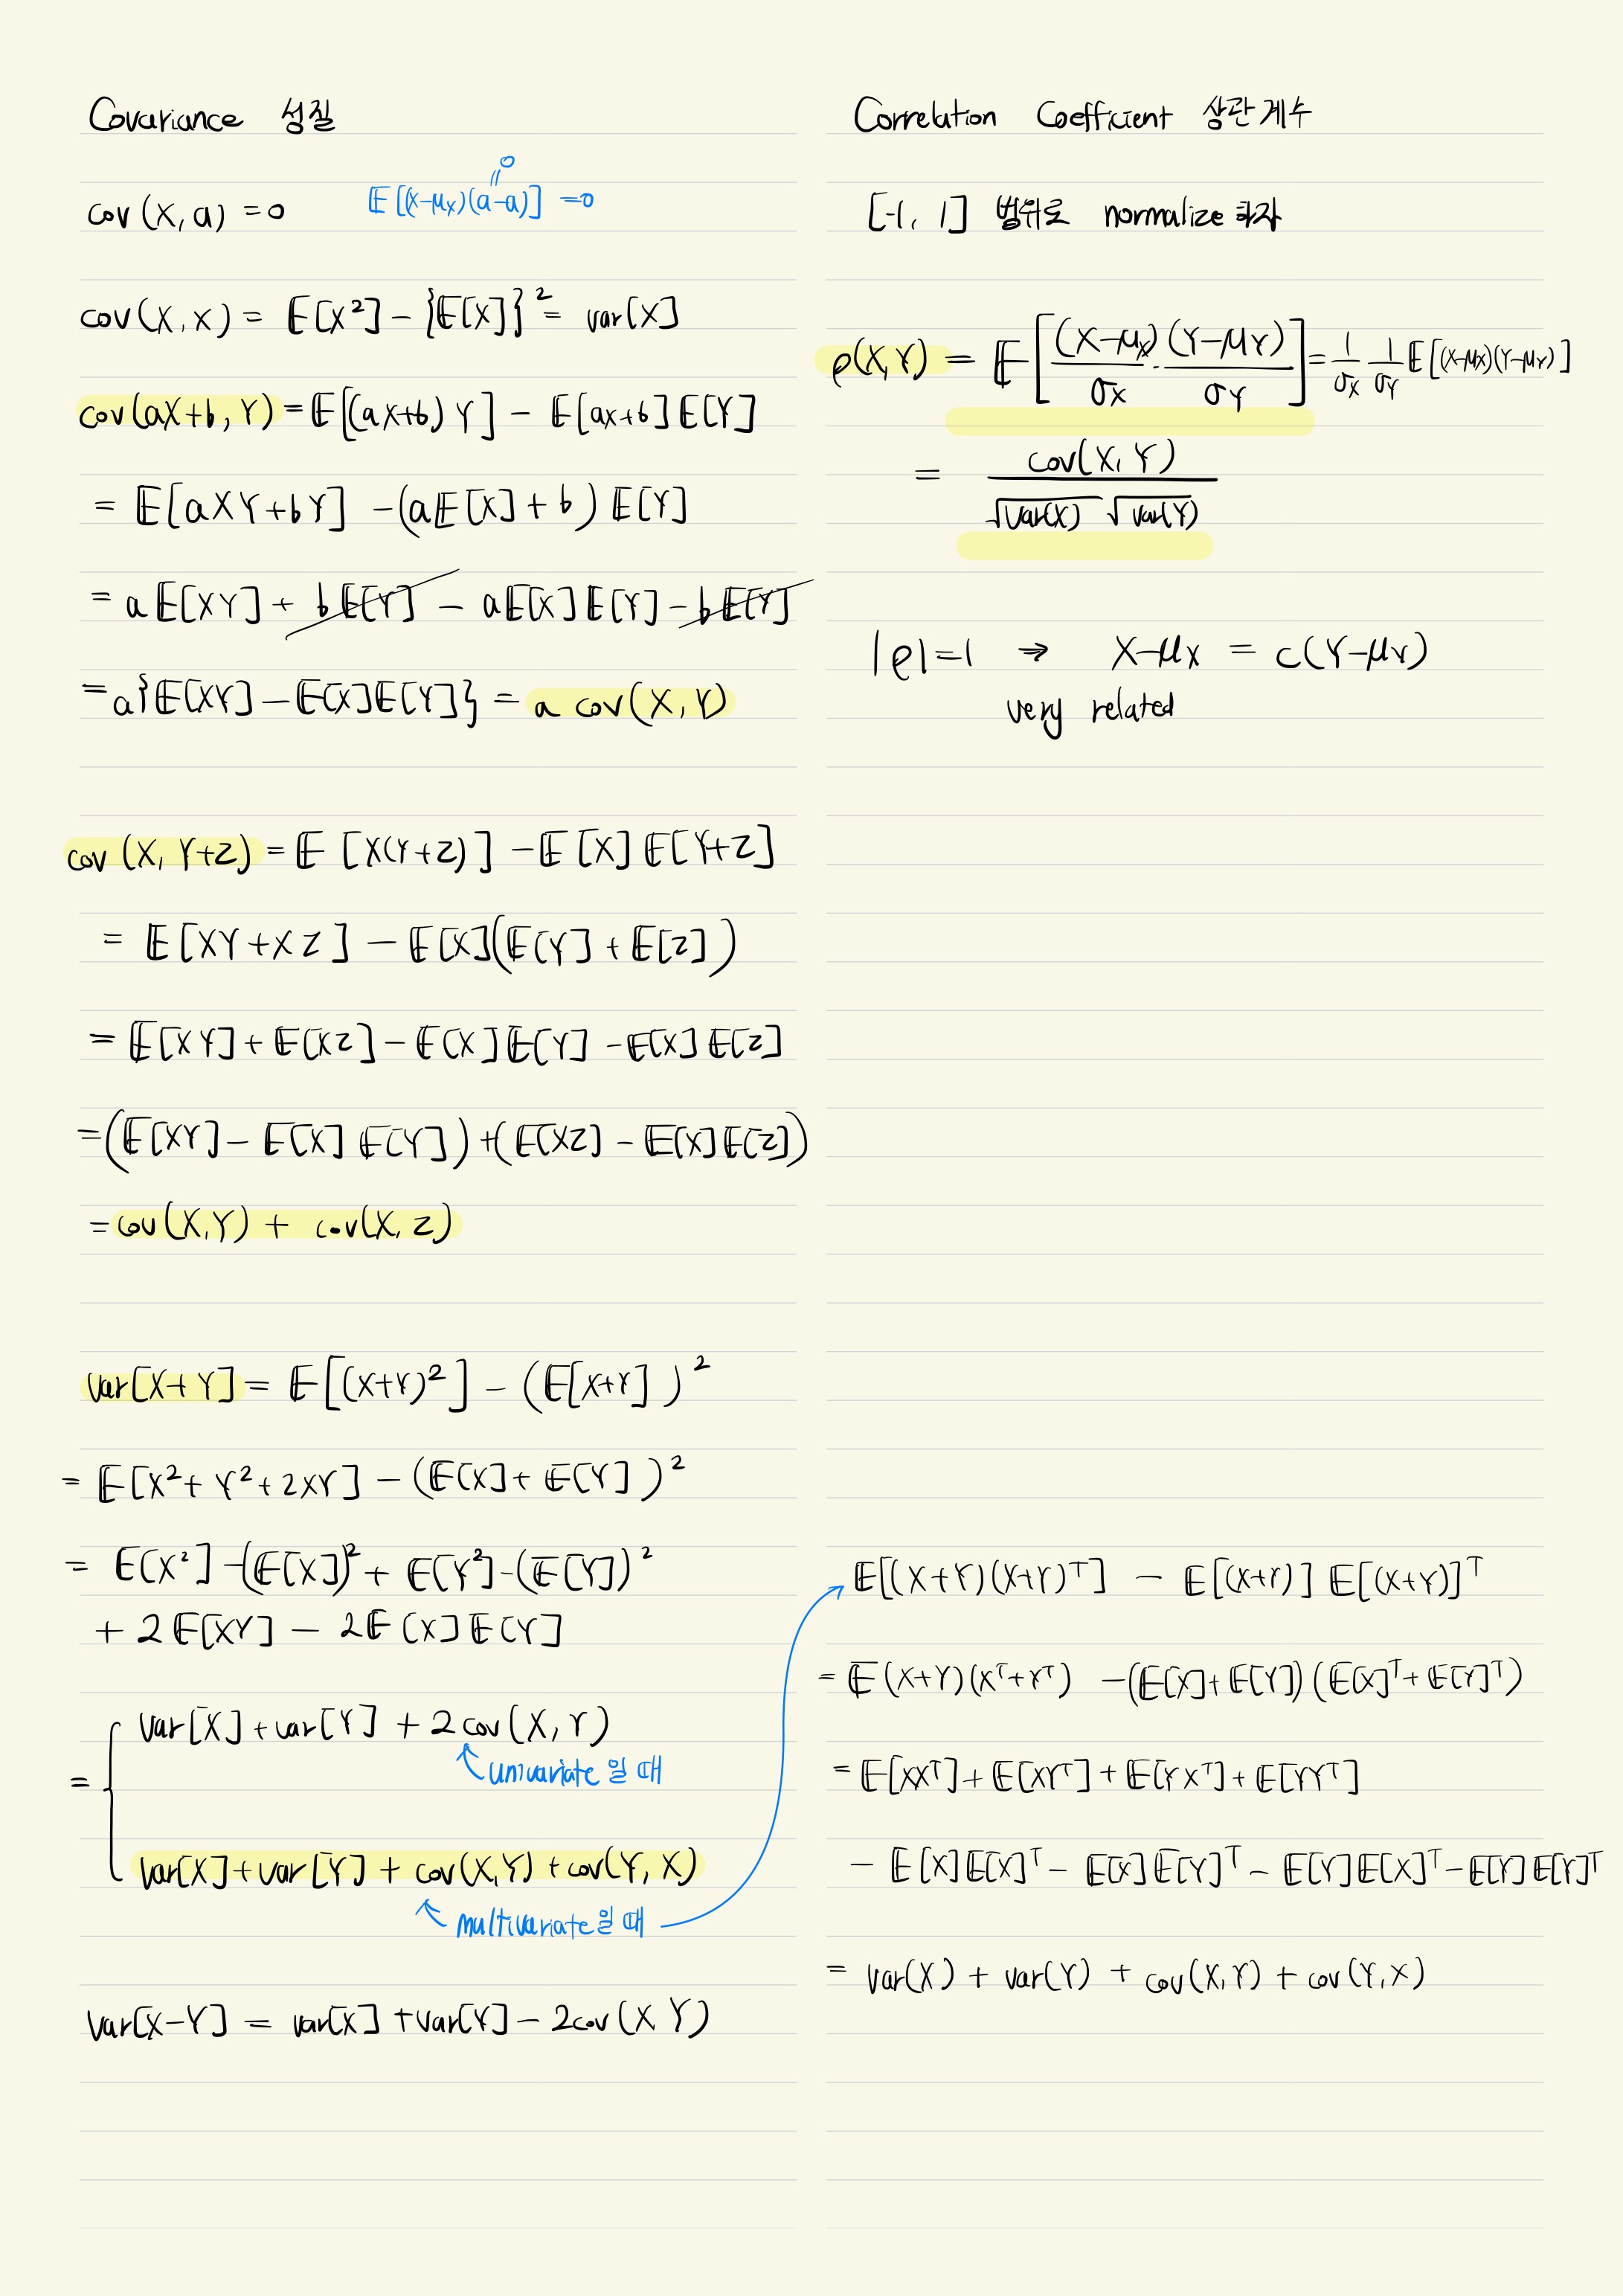 Covariance 성질
cov(X, a) = 0 E[(X-μx)(a-a)] = 0
= 0
cov(X, X) = E[X²] - {E[X]}² = var[X]
cov(aX+b, Y) = E[(aX+b)Y] - E[aX+b]E[Y]
= E[aXY+bY] - (aE[X]+b)E[Y]
= aE[XY] + bE[Y] - aE[X]E[Y] - bE[Y]
= a{E[XY] - E[X]E[Y]} = a cov(X, Y)
cov(X, Y+Z) = E[X(Y+Z)] - E[X]E[Y+Z]
= E[XY+XZ] - E[X](E[Y] + E[Z])
= E[XY] + E[XZ] - E[X]E[Y] - E[X]E[Z]
= (E[XY] - E[X]E[Y]) + (E[XZ] - E[X]E[Z])
= cov(X,Y) + cov(X, Z)
var[X+Y] = E[(X+Y)²] - (E[X+Y])²
= E[X² + Y² + 2XY] - (E[X] + E[Y])²
= E[X²] - (E[X])² + E[Y²] - (E[Y])²
+ 2E[XY] - 2E[X]E[Y]
= { var[X] + var[Y] + 2cov(X, Y)
univariate 일 때
var[X] + var[Y] + cov(X,Y) + cov(Y, X)
multivariate 일 때
var[X-Y] = var[X] + var[Y] - 2cov(X Y)
Correlation Coefficient 상관계수
[-1, 1] 범위로 normalize 하자
ρ(X,Y) = E[(X-μx)/σx · (Y-μY)/σY] = 1/σx 1/σY E[(X-μx)(Y-μY)]
= cov(X, Y) / √var(X) √var(Y)
|ρ|=1 → X-μx = c(Y-μY)
very related
E[(X+Y)(X+Y)ᵀ] - E[(X+Y)] E[(X+Y)]ᵀ
= E(X+Y)(Xᵀ+Yᵀ) - (E[X]+E[Y])(E[X]ᵀ+E[Y]ᵀ)
= E[XXᵀ] + E[XYᵀ] + E[YXᵀ] + E[YYᵀ]
- E[X]E[X]ᵀ - E[X]E[Y]ᵀ - E[Y]E[X]ᵀ - E[Y]E[Y]ᵀ
= var(X) + var(Y) + cov(X,Y) + cov(Y,X)